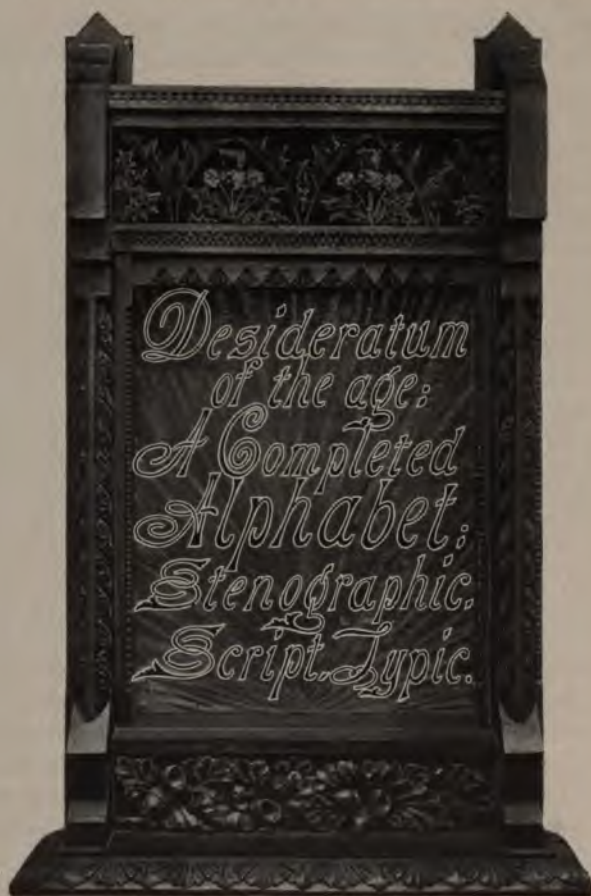 Desideratum
of the age:
A Completed
Alphabet;
Stenographic.
Script. Typic.